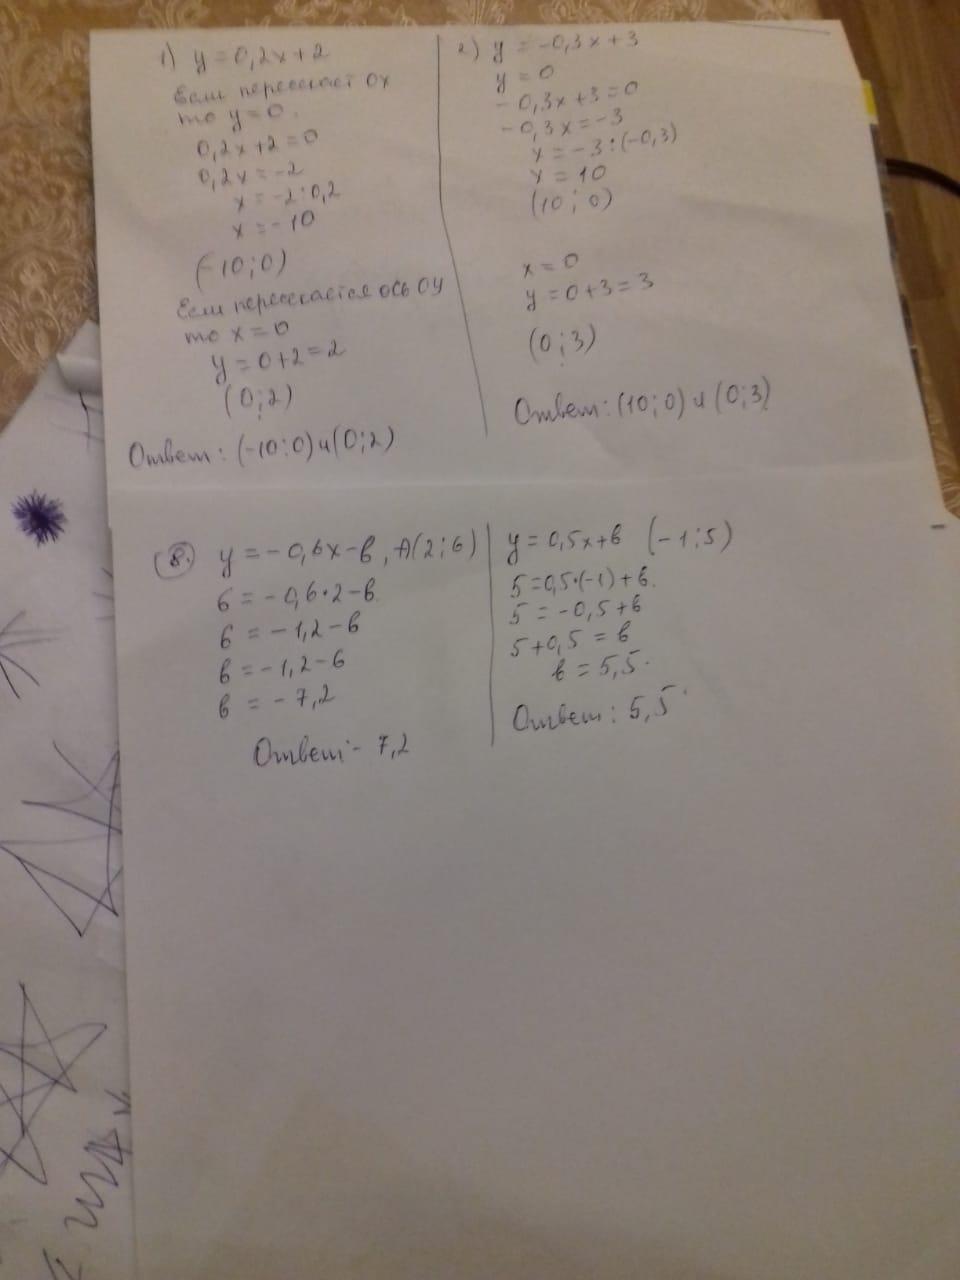 1) y = 0,2x + 2
Если пересекает Ox
то y = 0.
0,2x + 2 = 0
0,2x = -2
x = -2 : 0,2
x = -10
(-10; 0)
Если пересекается ось Oy
то x = 0
y = 0 + 2 = 2
(0; 2)
Ответ: (-10; 0) и (0; 2)
2) y = -0,3x + 3
y = 0
-0,3x + 3 = 0
-0,3x = -3
x = -3 : (-0,3)
x = 10
(10; 0)
x = 0
y = 0 + 3 = 3
(0; 3)
Ответ: (10; 0) и (0; 3)
8. y = -0,6x - в, A(2; 6)
6 = -0,6 · 2 - в
6 = -1,2 - в
в = -1,2 - 6
в = -7,2
Ответ: -7,2
y = 0,5x + в (-1; 5)
5 = 0,5 · (-1) + в.
5 = -0,5 + в
5 + 0,5 = в
в = 5,5.
Ответ: 5,5